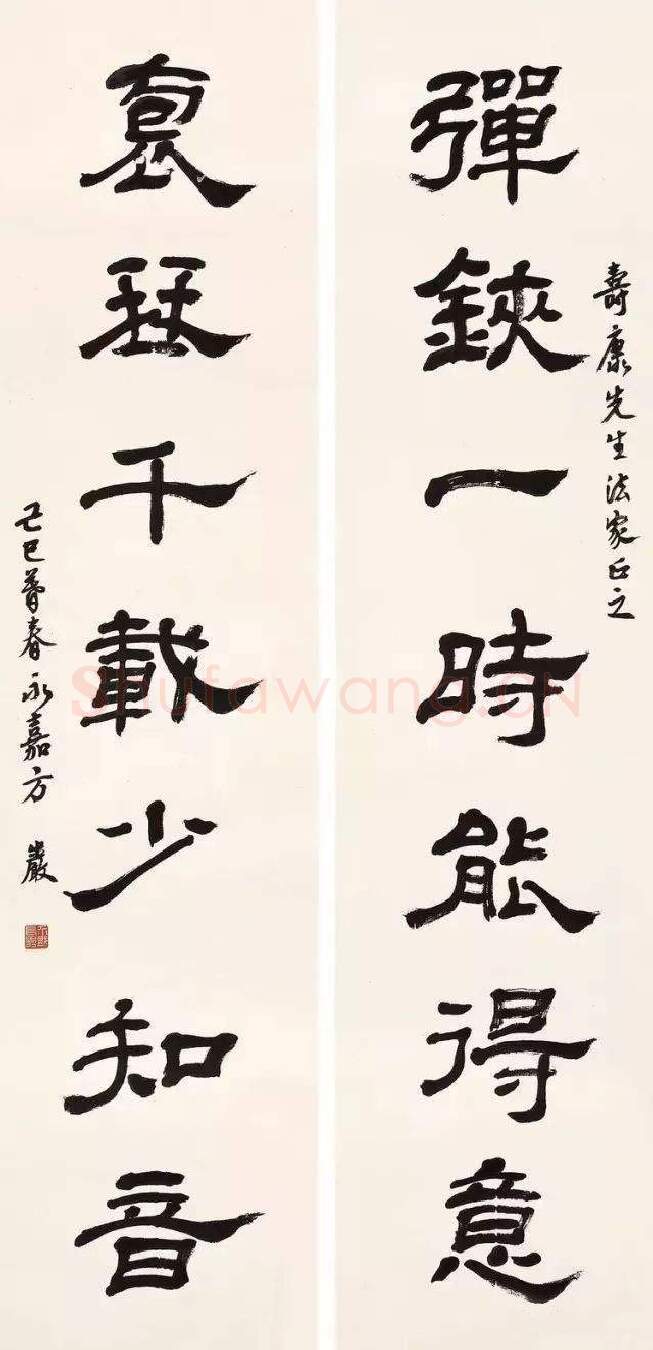 壽康先生法家正之
彈鋏一時能得意
袌琹千載少知音
己巳暮春永嘉方巖
Shufawang.CN